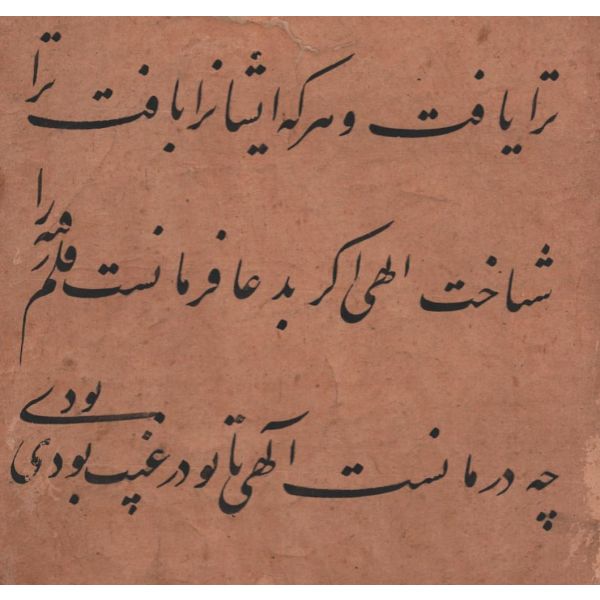 ترا یافت و هرکه ایشانرا یافت ترا
شناخت الهی اکر بدعا فرمانست قلم رفته را
چه درمانست آلهی تا تو در غیب بودی بودی